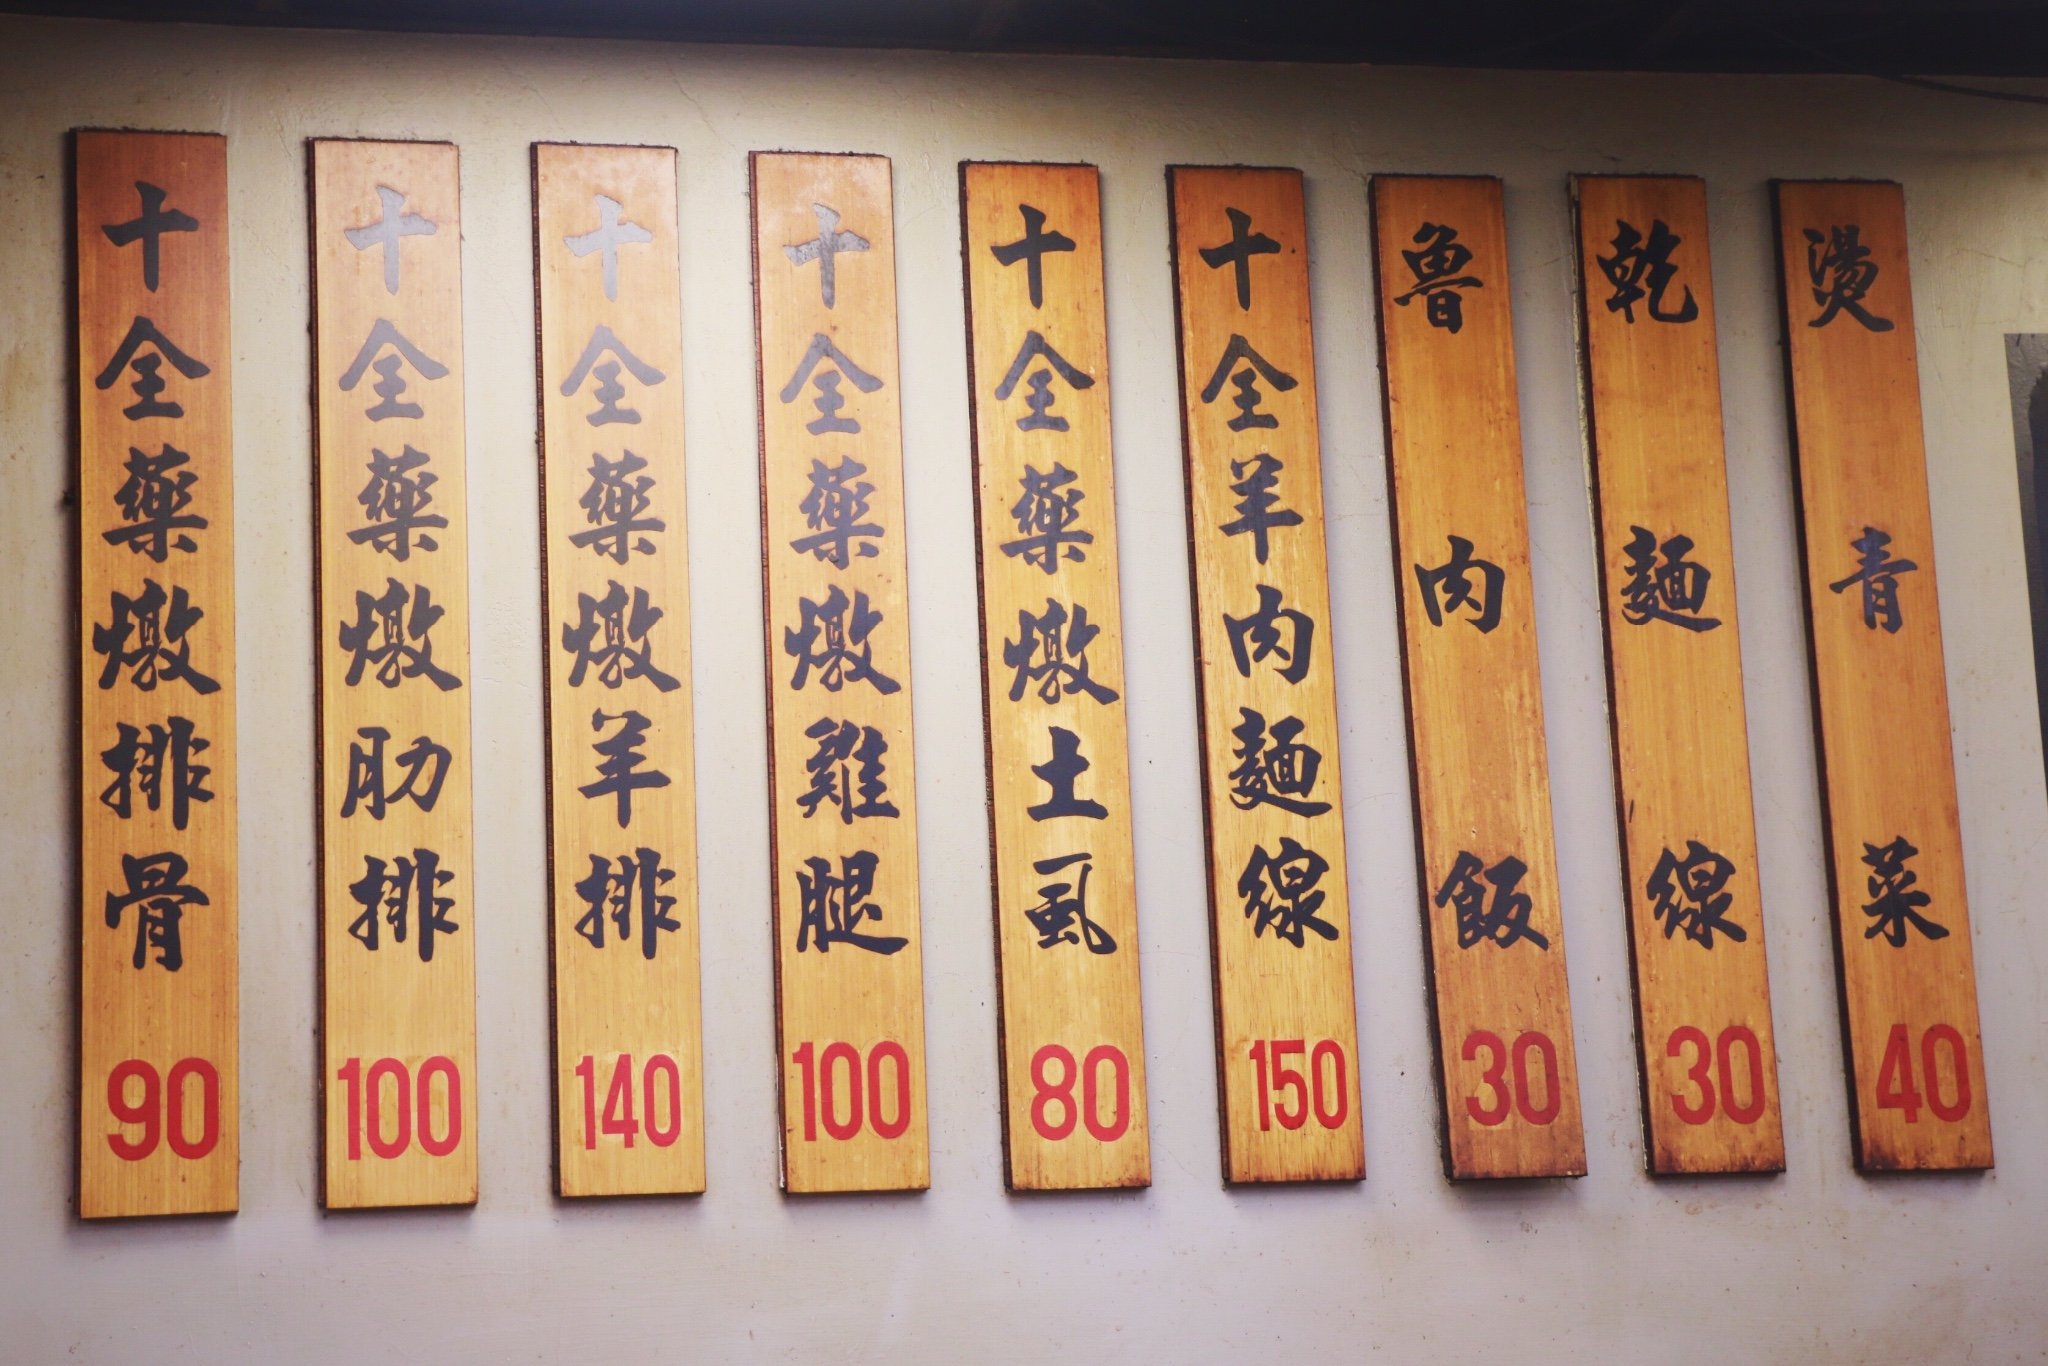 十全藥燉排骨 90
十全藥燉肋排 100
十全藥燉羊排 140
十全藥燉雞腿 100
十全藥燉土虱 80
十全羊肉麵線 150
魯肉飯 30
乾麵線 30
燙青菜 40